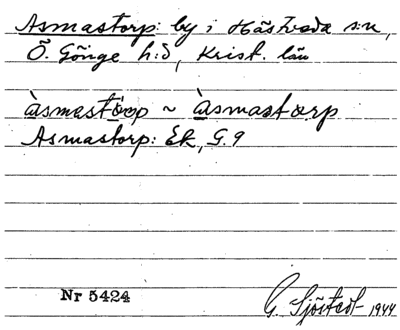 Asmastorp: by i Hästveda s:n,
Ö. Göinge h:d, Krist. län
àsmastöop ~ Àsmastorp
Asmastorp: Ek, G. 9
Nr 5424
G. Sjöstedt 1944